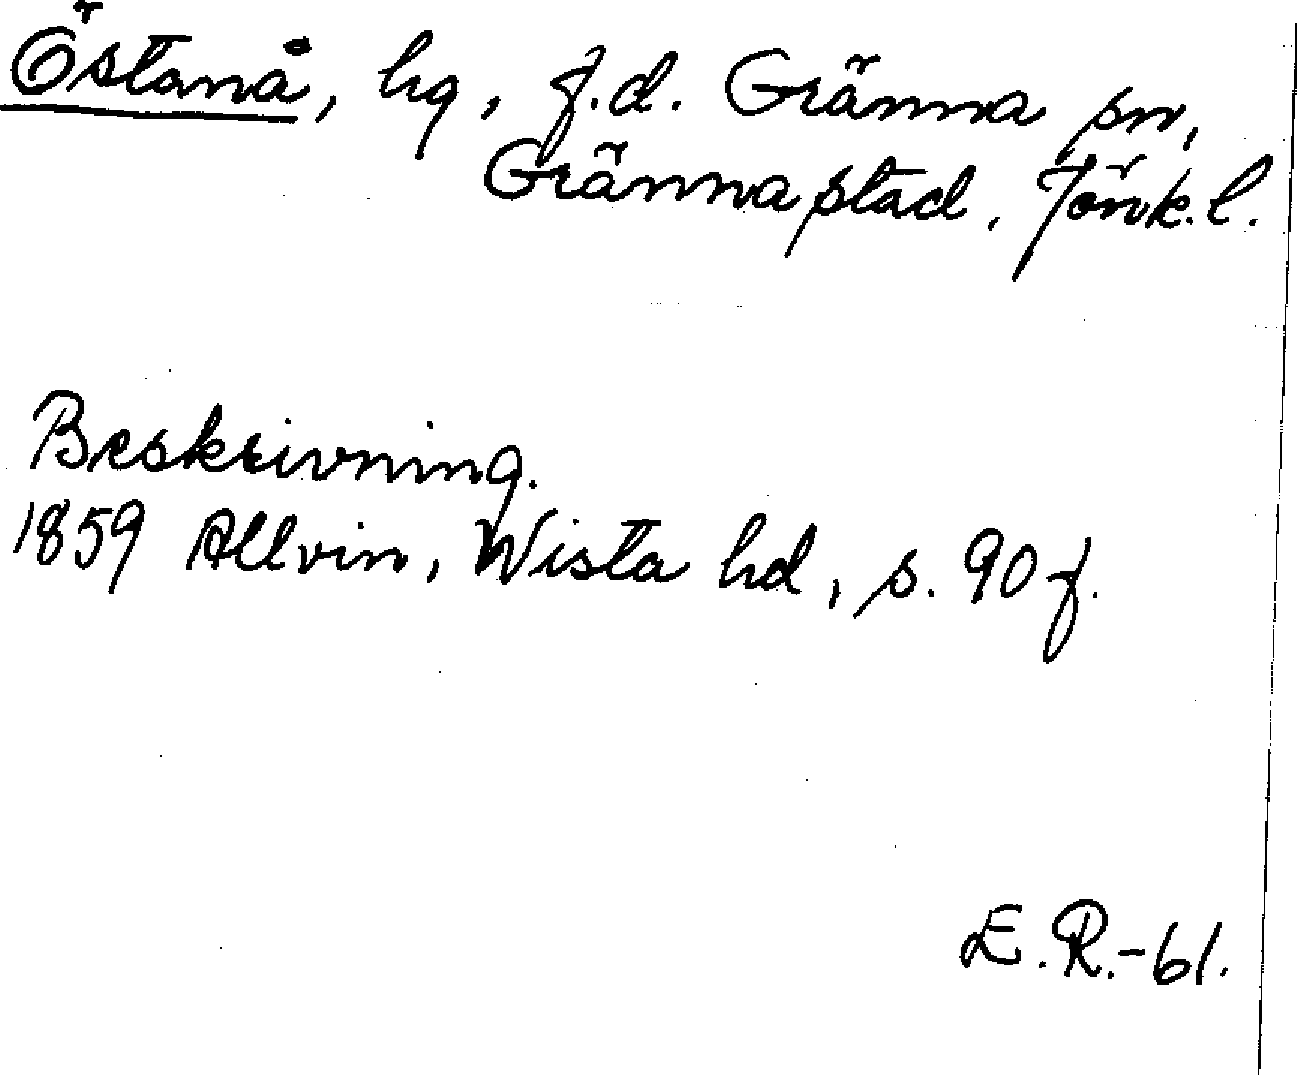 Östanå, hg, f.d. Gränna sn,
Gränna stad, Jönk.l.
Beskrivning.
1859 Allvin, Wista hd, s. 90 f.
E.R.-61.